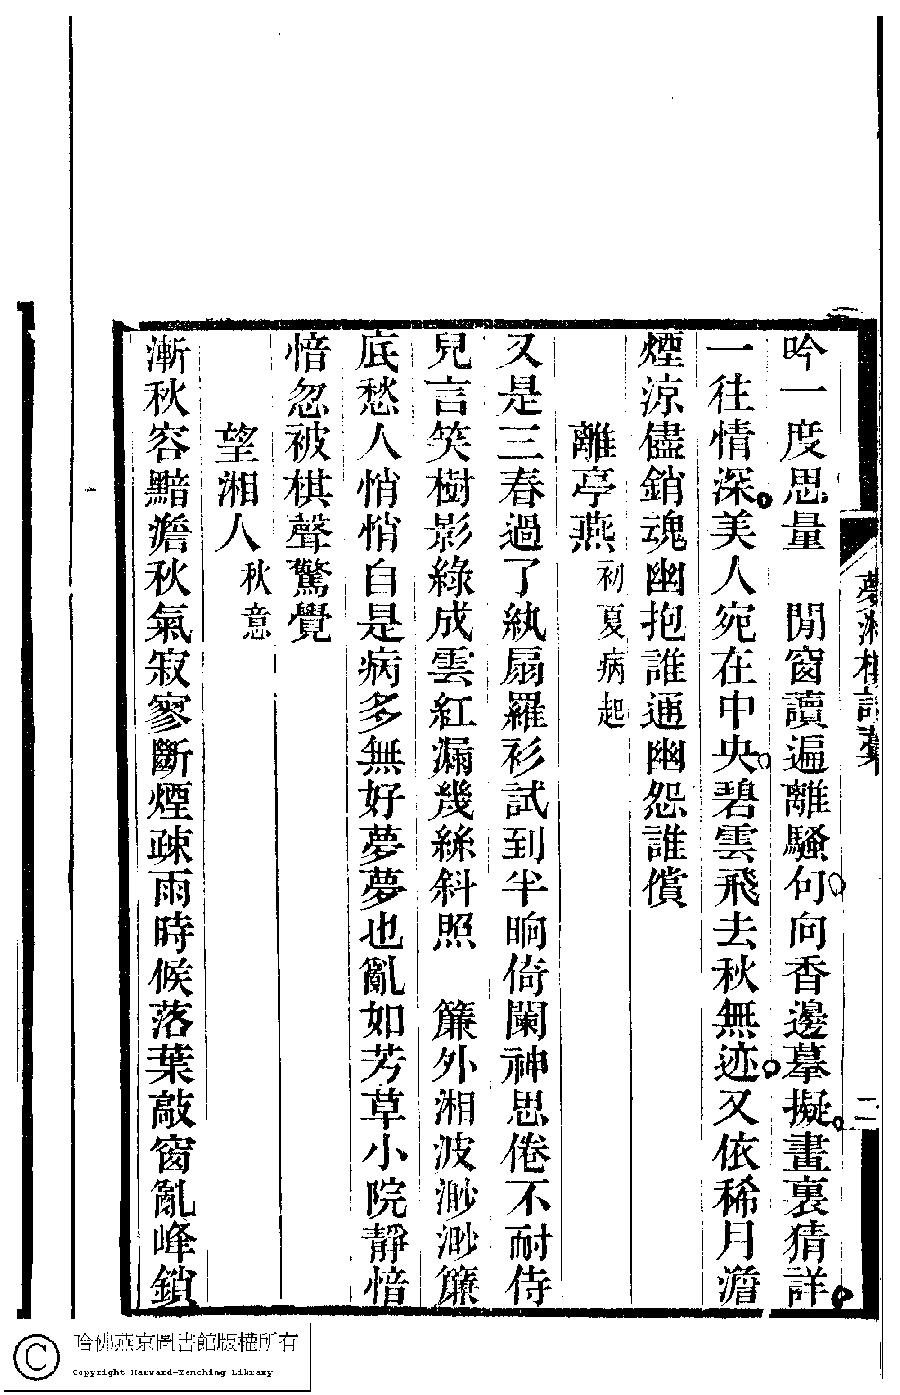 吟一度思量　閒窗讀遍離騷句向香邊摹擬畫裏猜詳
一往情深美人宛在中央碧雲飛去秋無迹又依稀月澹
煙涼儘銷魂幽抱誰通幽怨誰償
離亭燕初夏病起
又是三春過了紈扇羅衫試到半晌倚闌神思倦不耐侍
兒言笑樹影綠成雲紅漏幾絲斜照　簾外湘波渺渺簾
底愁人悄悄自是病多無好夢夢也亂如芳草小院靜愔
愔忽被棋聲驚覺
望湘人秋意
漸秋容黯澹秋氣寂寥斷煙疎雨時候落葉敲窗亂峰鎖
二
哈佛燕京圖書館版權所有
Copyright Harvard-Yenching Library